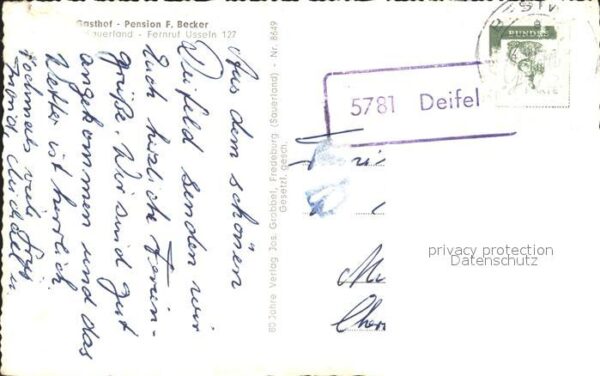 Gasthof - Pension F. Becker
Sauerland - Fernruf Usseln 127
Aus dem schönen
Deifeld senden wir
Euch herzliche Ferien-
grüße. Wir sind gut
angekommen und das
Wetter ist herrlich.
Nochmals viele
80 Jahre Verlag Jos. Grobbel, Fredeburg (Sauerland) - Nr. 8649
Gesetzl. gesch.
5781 Deifel
BUNDES
privacy protection
Datenschutz